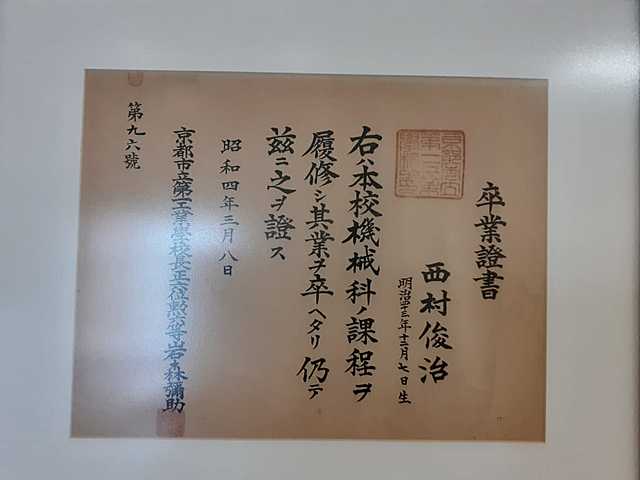 卒業證書
西村俊治
明治四十三年十二月七日生
右ハ本校機械科ノ課程ヲ
履修シ其業ヲ卒ヘタリ仍テ
茲ニ之ヲ證ス
昭和四年三月八日
京都市立第一工業學校長正六位勲六等岩森彌助
第九六號